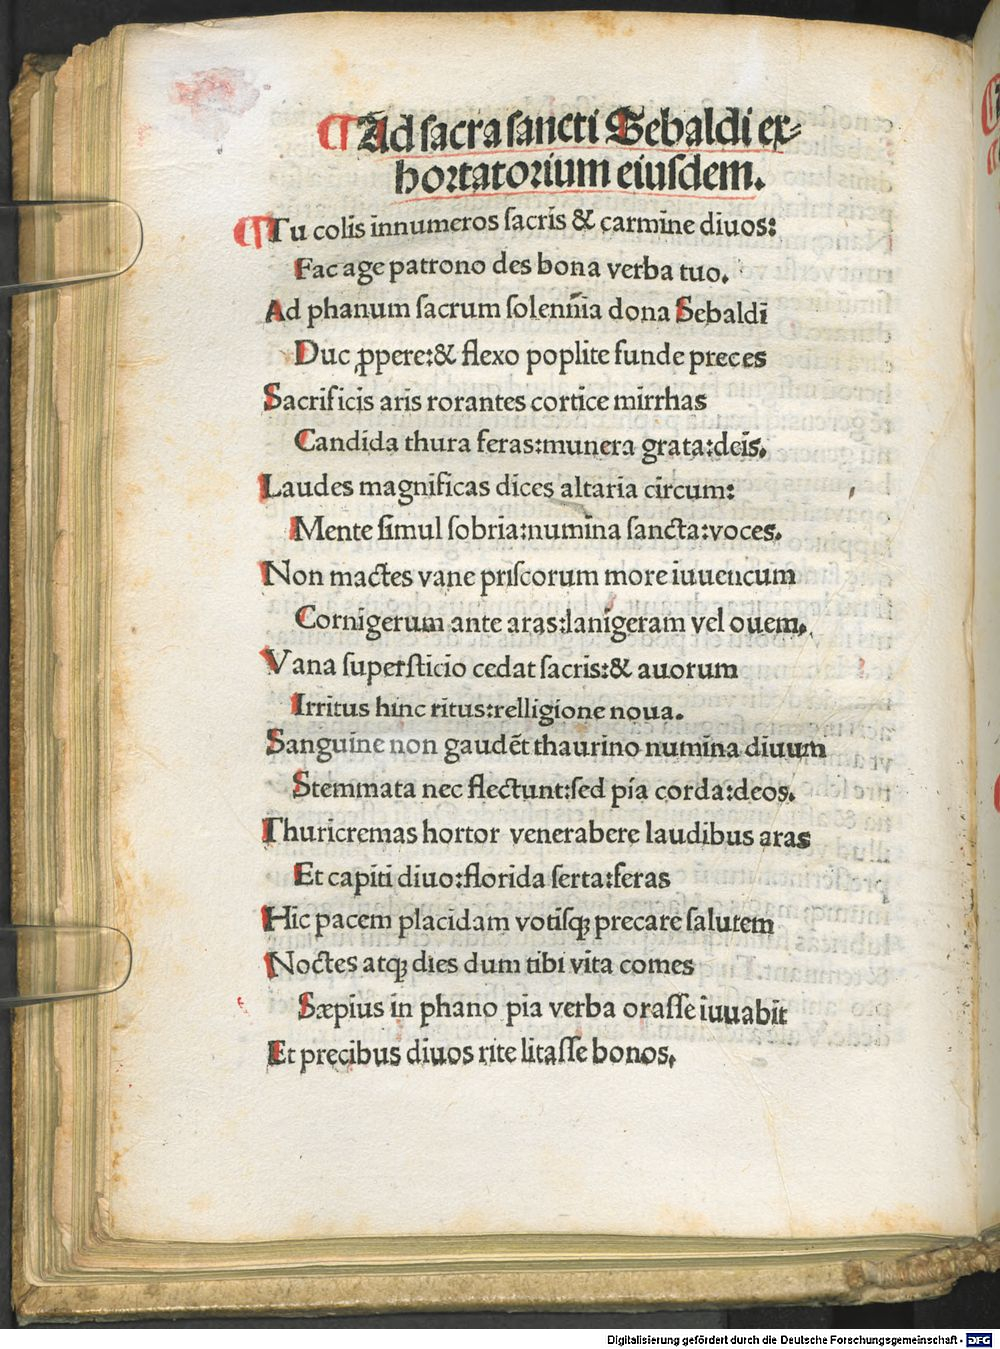 ¶ Ad sacra sancti Sebaldi ex⸗
hortatorium eiusdem.
¶ Tu colis innumeros ſacris & carmine diuos:
Fac age patrono des bona verba tuo.
Ad phanum ſacrum ſolenñia dona Sebaldi
Duc ꝓpere:& flexo poplite funde preces
Sacrificis aris rorantes cortice mirrhas
Candida thura feras:munera grata:deis.
Laudes magnificas dices altaria circum:
Mente ſimul ſobria:numina ſancta:voces.
Non mactes vane priſcorum more iuuencum
Cornigerum ante aras:lanigeram vel ouem.
Vana ſuperſticio cedat ſacris:& auorum
Irritus hinc ritus:relligione noua.
Sanguine non gaudēt thaurino numina diuum
Stemmata nec flectunt:ſed pia corda:deos.
Thuricremas hortor venerabere laudibus aras
Et capiti diuo:florida ſerta:feras
Hic pacem placidam votiſqꝫ precare ſalutem
Noctes atqꝫ dies dum tibi vita comes
Sæpius in phano pia verba oraſſe iuuabit
Et precibus diuos rite litaſſe bonos.
Digitalisierung gefördert durch die Deutsche Forschungsgemeinschaft - DFG